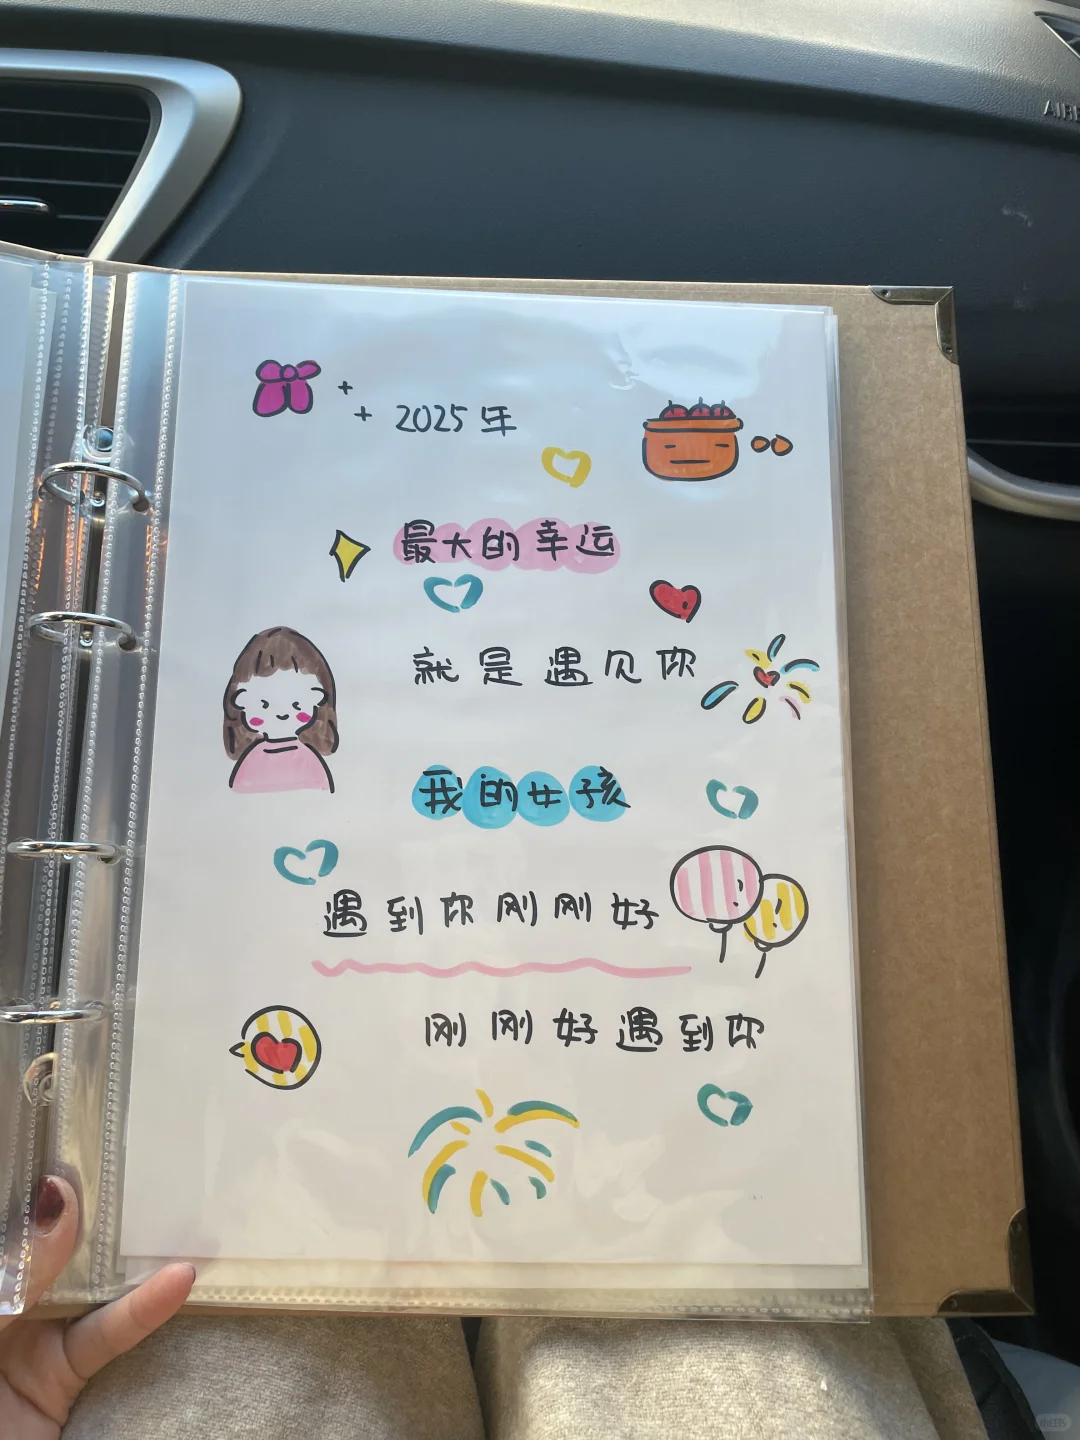 AIRB
2025年
最大的幸运
就是遇见你
我的女孩
遇到你刚刚好
刚刚好遇到你